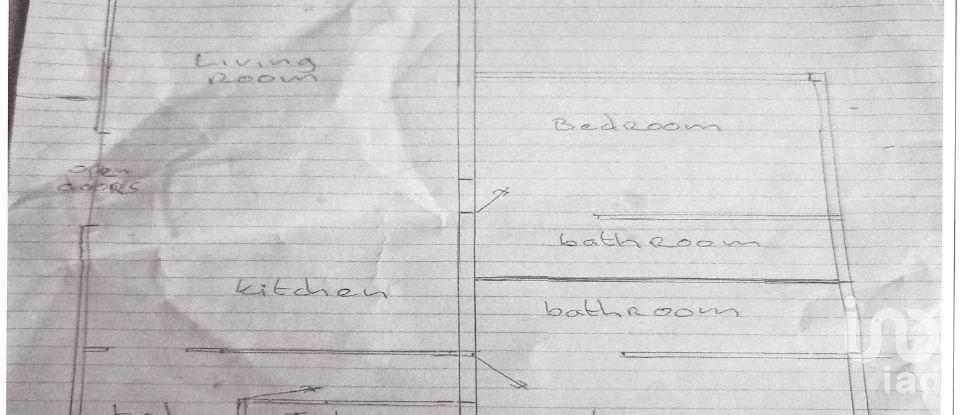 Living
Room
Bedroom
open
doors
bathroom
kitchen
bathroom
iad